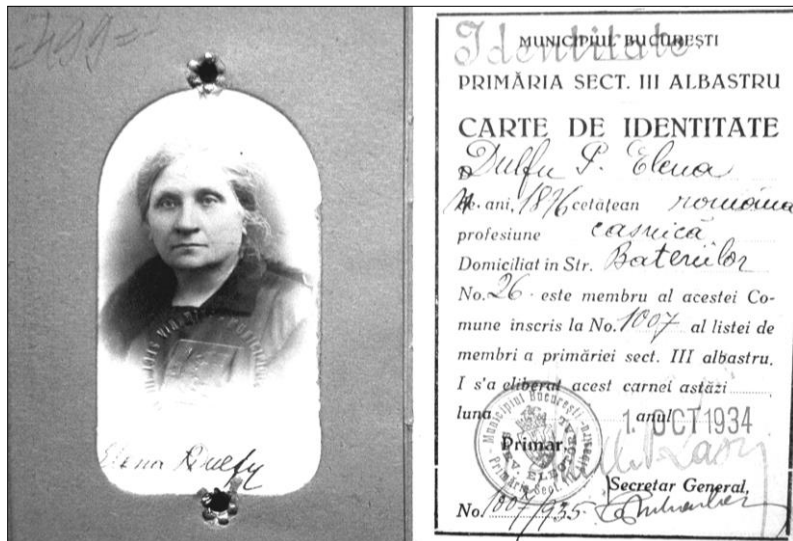 =499=
Elena Dulfu
Identitate
MUNICIPIUL BUCUREȘTI
PRIMĂRIA SECT. III ALBASTRU
CARTE DE IDENTITATE
Dulfu P. Elena
de ani, 1876 cetățean româna
profesiune casnică
Domiciliat in Str. Bateriilor
No. 26 este membru al acestei Co-
mune inscris la No. 1007 al listei de
membri a primăriei sect. III albastru.
I s'a eliberat acest carnet astăzi
luna anul
1. OCT 1934
Primar,
Municipiul București
Primăria Sect. III Albastru
SERV. ELECTORAL
Secretar General,
No. 1007/935